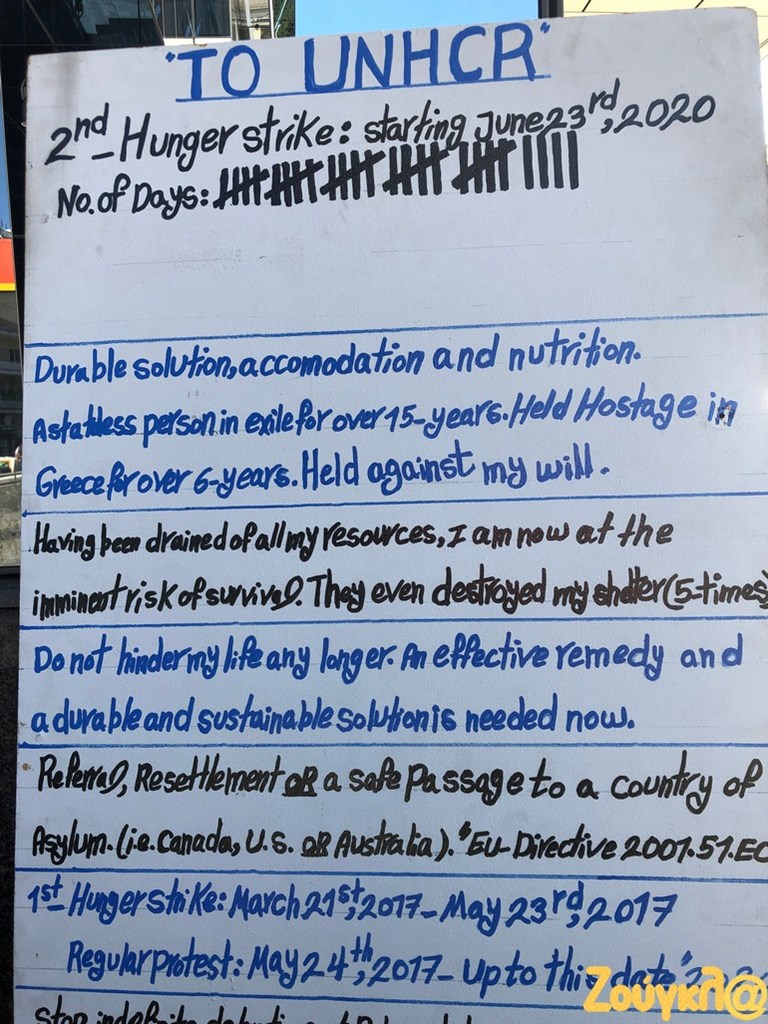 "TO UNHCR"
2nd - Hunger strike: starting June 23rd, 2020
No. of Days: 卌 卌 卌 卌 卌 ||||
Durable solution, accomodation and nutrition.
A stateless person in exile for over 15-years. Held Hostage in
Greece for over 6-years. Held against my will.
Having been drained of all my resources, I am now at the
imminent risk of survival. They even destroyed my shelter (5-times)
Do not hinder my life any longer. An effective remedy and
a durable and sustainable solution is needed now.
Referral, Resettlement OR a safe passage to a country of
Asylum. (i.e. Canada, U.S. OR Australia). "EU-Directive 2001.51.EC
1st - Hunger strike: March 21st, 2017 - May 23rd, 2017
Regular protest: May 24th, 2017 - Up to this date"
Ζούγκλ@
Stop indefinite